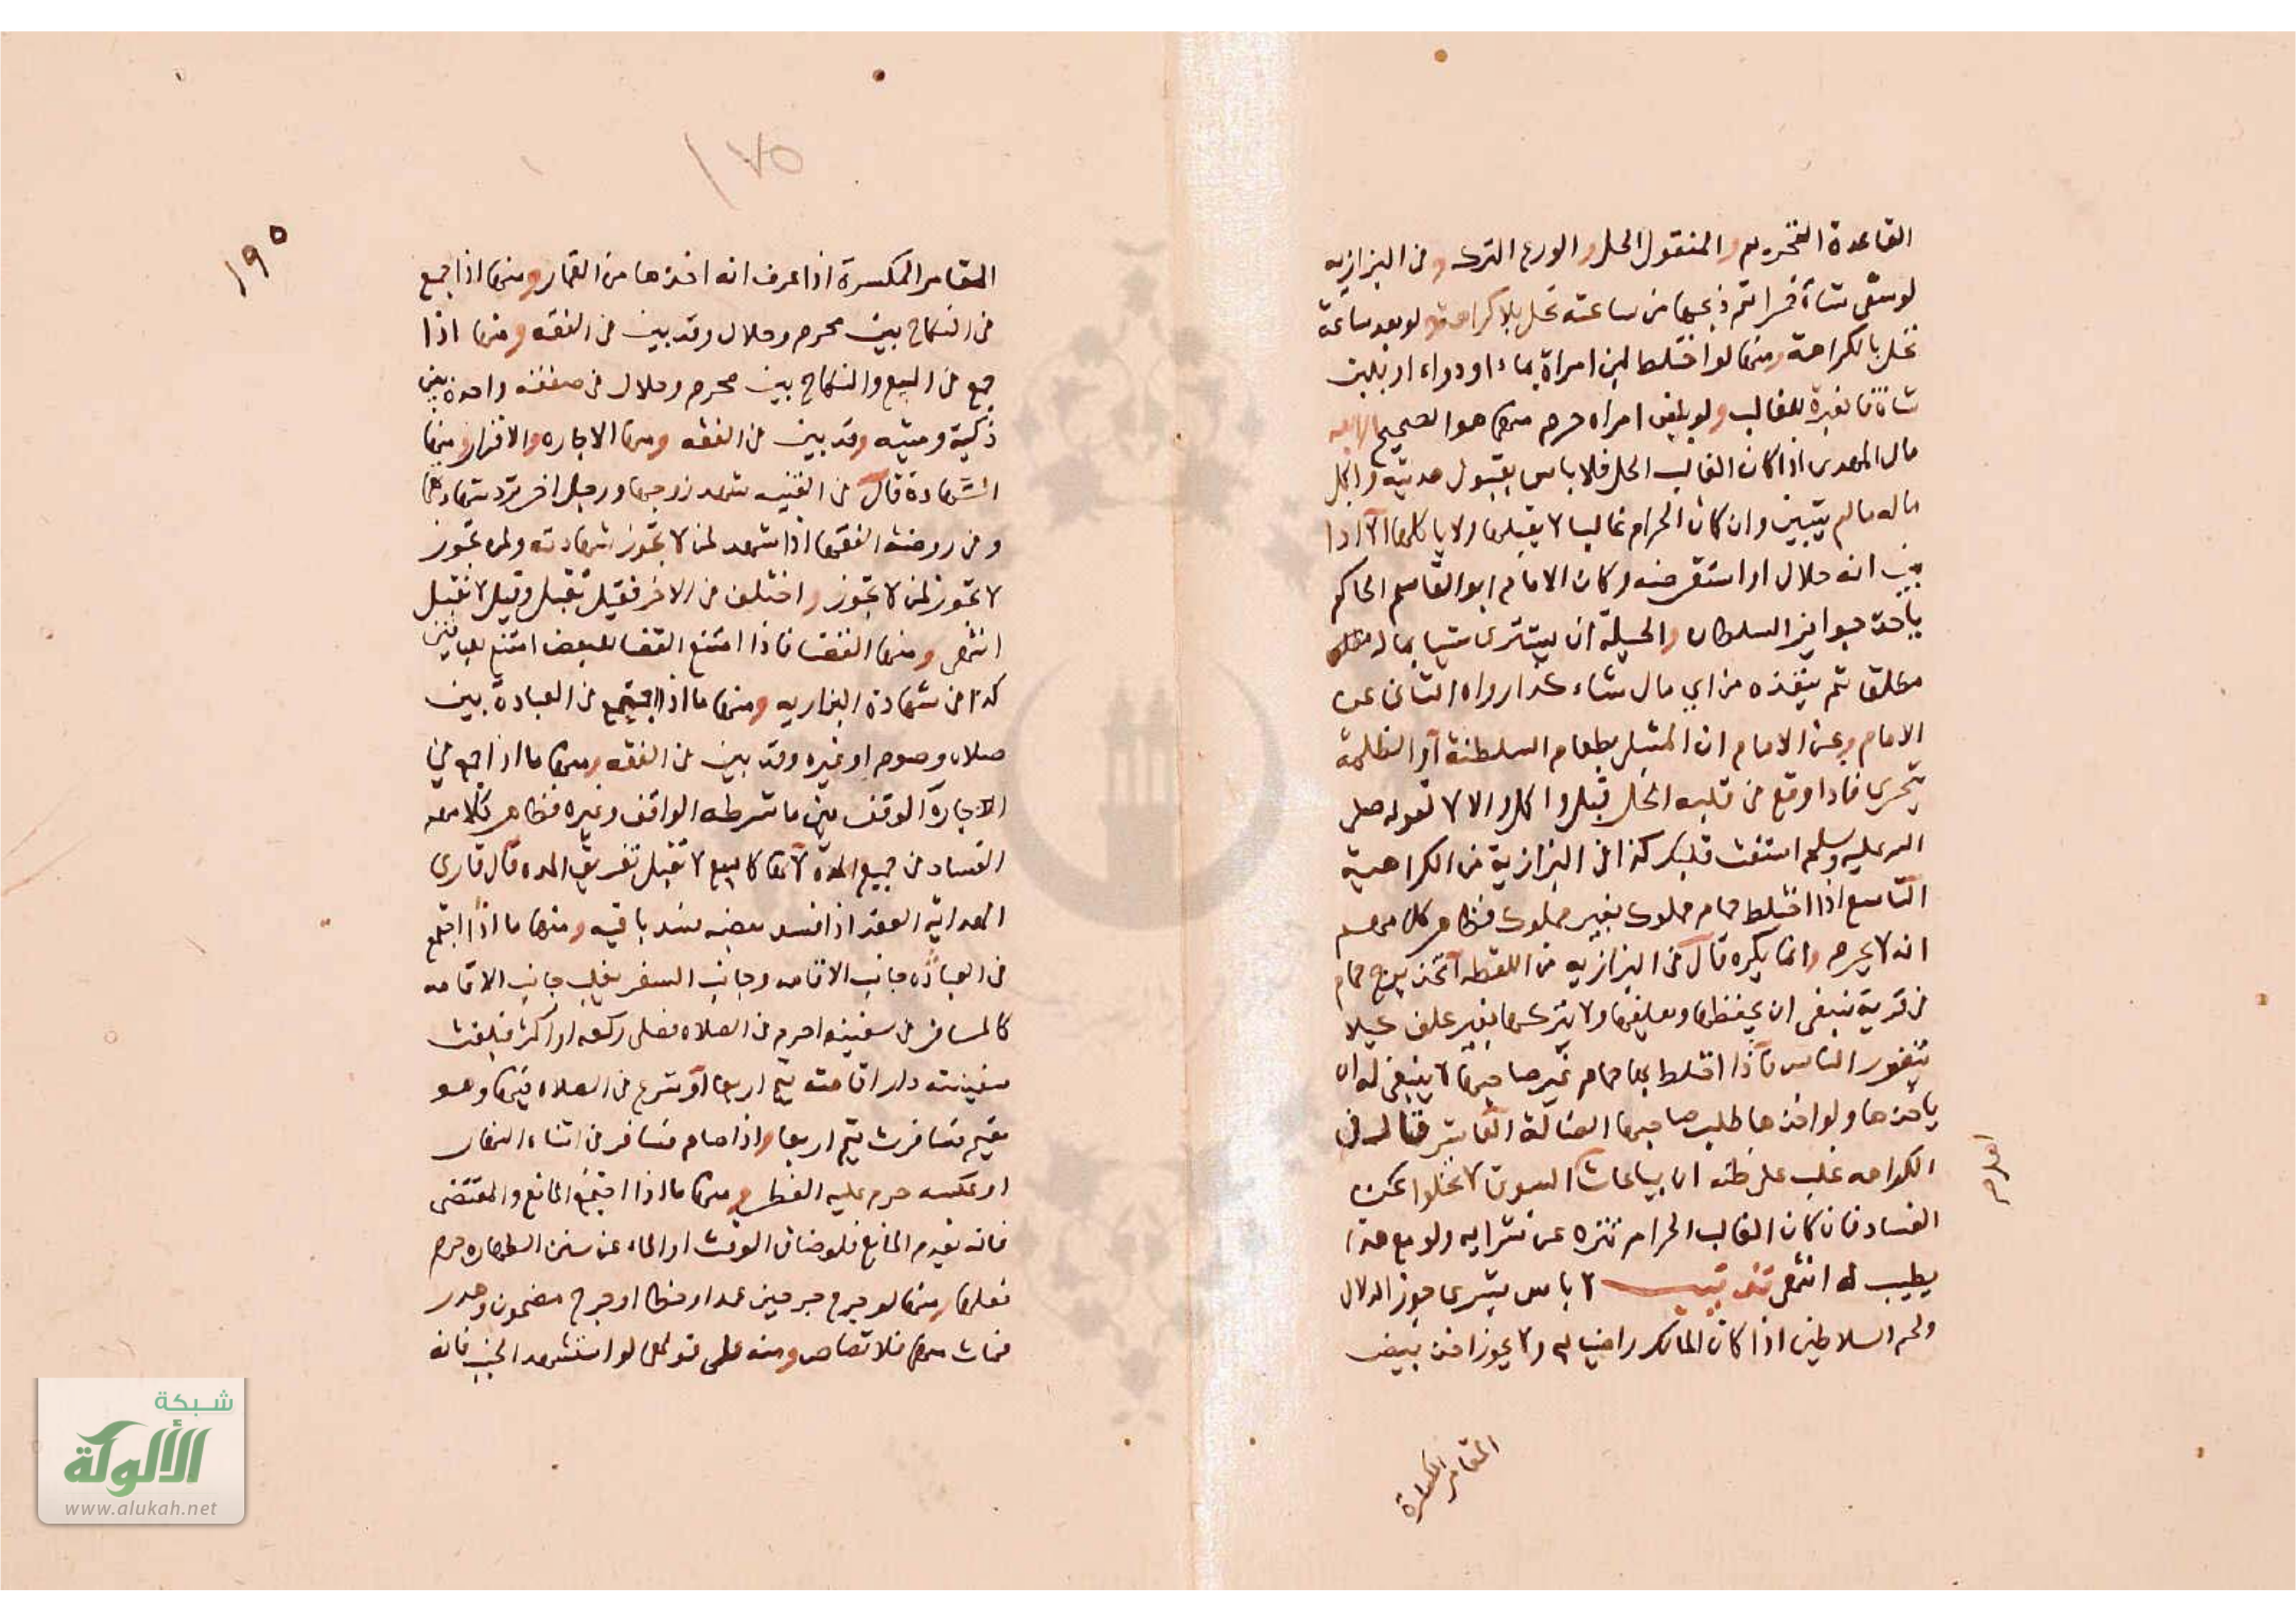 القاعدة التحريم والمنقول الحل والورع الترك وفي البزازيه
لوسقى شاة خمرا ثم ذبحها من ساعته تحل بلا كراهة ولو بعد ساعة
تحل بالكراهة ومنها لو اختلط لبن امراة بماء او دواء او بلبن
شاة فالعبرة للغالب ولو بلبن امراه حرم منهما هو الصحيح الرابعه
مال المهدى اذا كان الغالب الحل فلا باس بقبول هديته واكل
ماله ما لم يتبين وان كان الحرام غالبا لا يقبلها ولا ياكلها الا اذا
بين انه حلال او استقرضه وكان الامام ابو القاسم الحاكم
ياخذ جوايز السلطان والحيلة ان يشترى شيا بمال
مطلق ثم ينقده من اي مال شاء كذا رواه الثانى عن
الامام وعن الامام ان المبتلى بطعام السلطنة او الظلمة
يتحرى فاذا وقع في قلبه الحل قبل واكل والا لا لقوله صلى
الله عليه وسلم استفت قلبك كذا فى البزازية من الكراهية
التاسع اذا اختلط حمام مملوك بغير مملوك فظاهر كلامهم
انه لا يحرم وانما يكره قال فى البزازيه من اللقطه اتخذ برج حمام
فى قرية ينبغى ان يحفظها ويعلفها ولا يتركها بغير علف كيلا
يتضرر الناس فاذا اختلط بها حمام غير صاحبها لا ينبغى له ان
ياخذها ولو اخذها طلب صاحبها الضالة العاشر قال فى
الكراهه غلب على ظنه ان بياعات السوق لا تخلوا عن
الفساد فان كان الغالب الحرام تنزه عن شرايه ولو مع هذا
يطيب له انتهى لا باس بشرى جوز الدلال
ولحم السلاطين اذا كان المالك راضيا به ولا يجوز اخذ بيض
المقامر المكسرة
١٩٥
١٧٥
المقامر المكسرة اذا عرف انه اخذها من القمار ومنها اذا جمع
فى النكاح بين محرم وحلال وقد بين فى الفقه ومنها اذا
جمع فى البيع والنكاح بين محرم وحلال فى صفقة واحدة بين
ذكية وميته وقد بين فى الفقه ومنها الاجاره والاقرار ومنها
الشهادة قال فى القنيه شهد زوجها ورجل اخر ترد شهادتهما
وفى روضة الفقها اذا شهد لمن لا تجوز شهادته ولمن تجوز
لا تجوز لمن لا تجوز واختلف فى الاخر فقيل تقبل وقيل لا تقبل
انتهى ومنها القضا فاذا امتنع القضا للبعض امتنع للباقين
كذا فى شهادة البزازيه ومنها ما اذا اجتمع فى العبادة بين
صلاه وصوم او غيره وقد بين فى الفقه ومنها ما اذا جمع فى
الاجارة الوقف بين ما شرطه الواقف وغيره فظاهر كلامهم
الفساد فى جميع المدة لانها كالبيع لا تقبل تفريق المده قال قارى
الهدايه العقد اذا فسد بعضه فسد باقيه ومنها ما اذا اجتمع
فى العباده جانب الاقامه وجانب السفر يغلب جانب الاقامه
كالمسافر فى سفينه احرم فى الصلاه فصلى ركعه او اكثر فبلغت
سفينته دار اقامته يتم اربعا او شرع فى الصلاه فيها وهو
مقيم فسافرت يتم اربعا واذا صام فسافر فى اثناء النهار
او عكسه حرم عليه الفطر ومنها ما اذا اجتمع المانع والمقتضى
فانه يقدم المانع فلو ضاق الوقت او الماء عن سنن الطهاره حرم
فعلها ومنها لو جرح جرحين عمدا وخطا او جرح مضمون وهدر
فمات منها فلا قصاص ومنه على قولهما لو استشهد الجنب فانه
شبكة
الألوكة
www.alukah.net